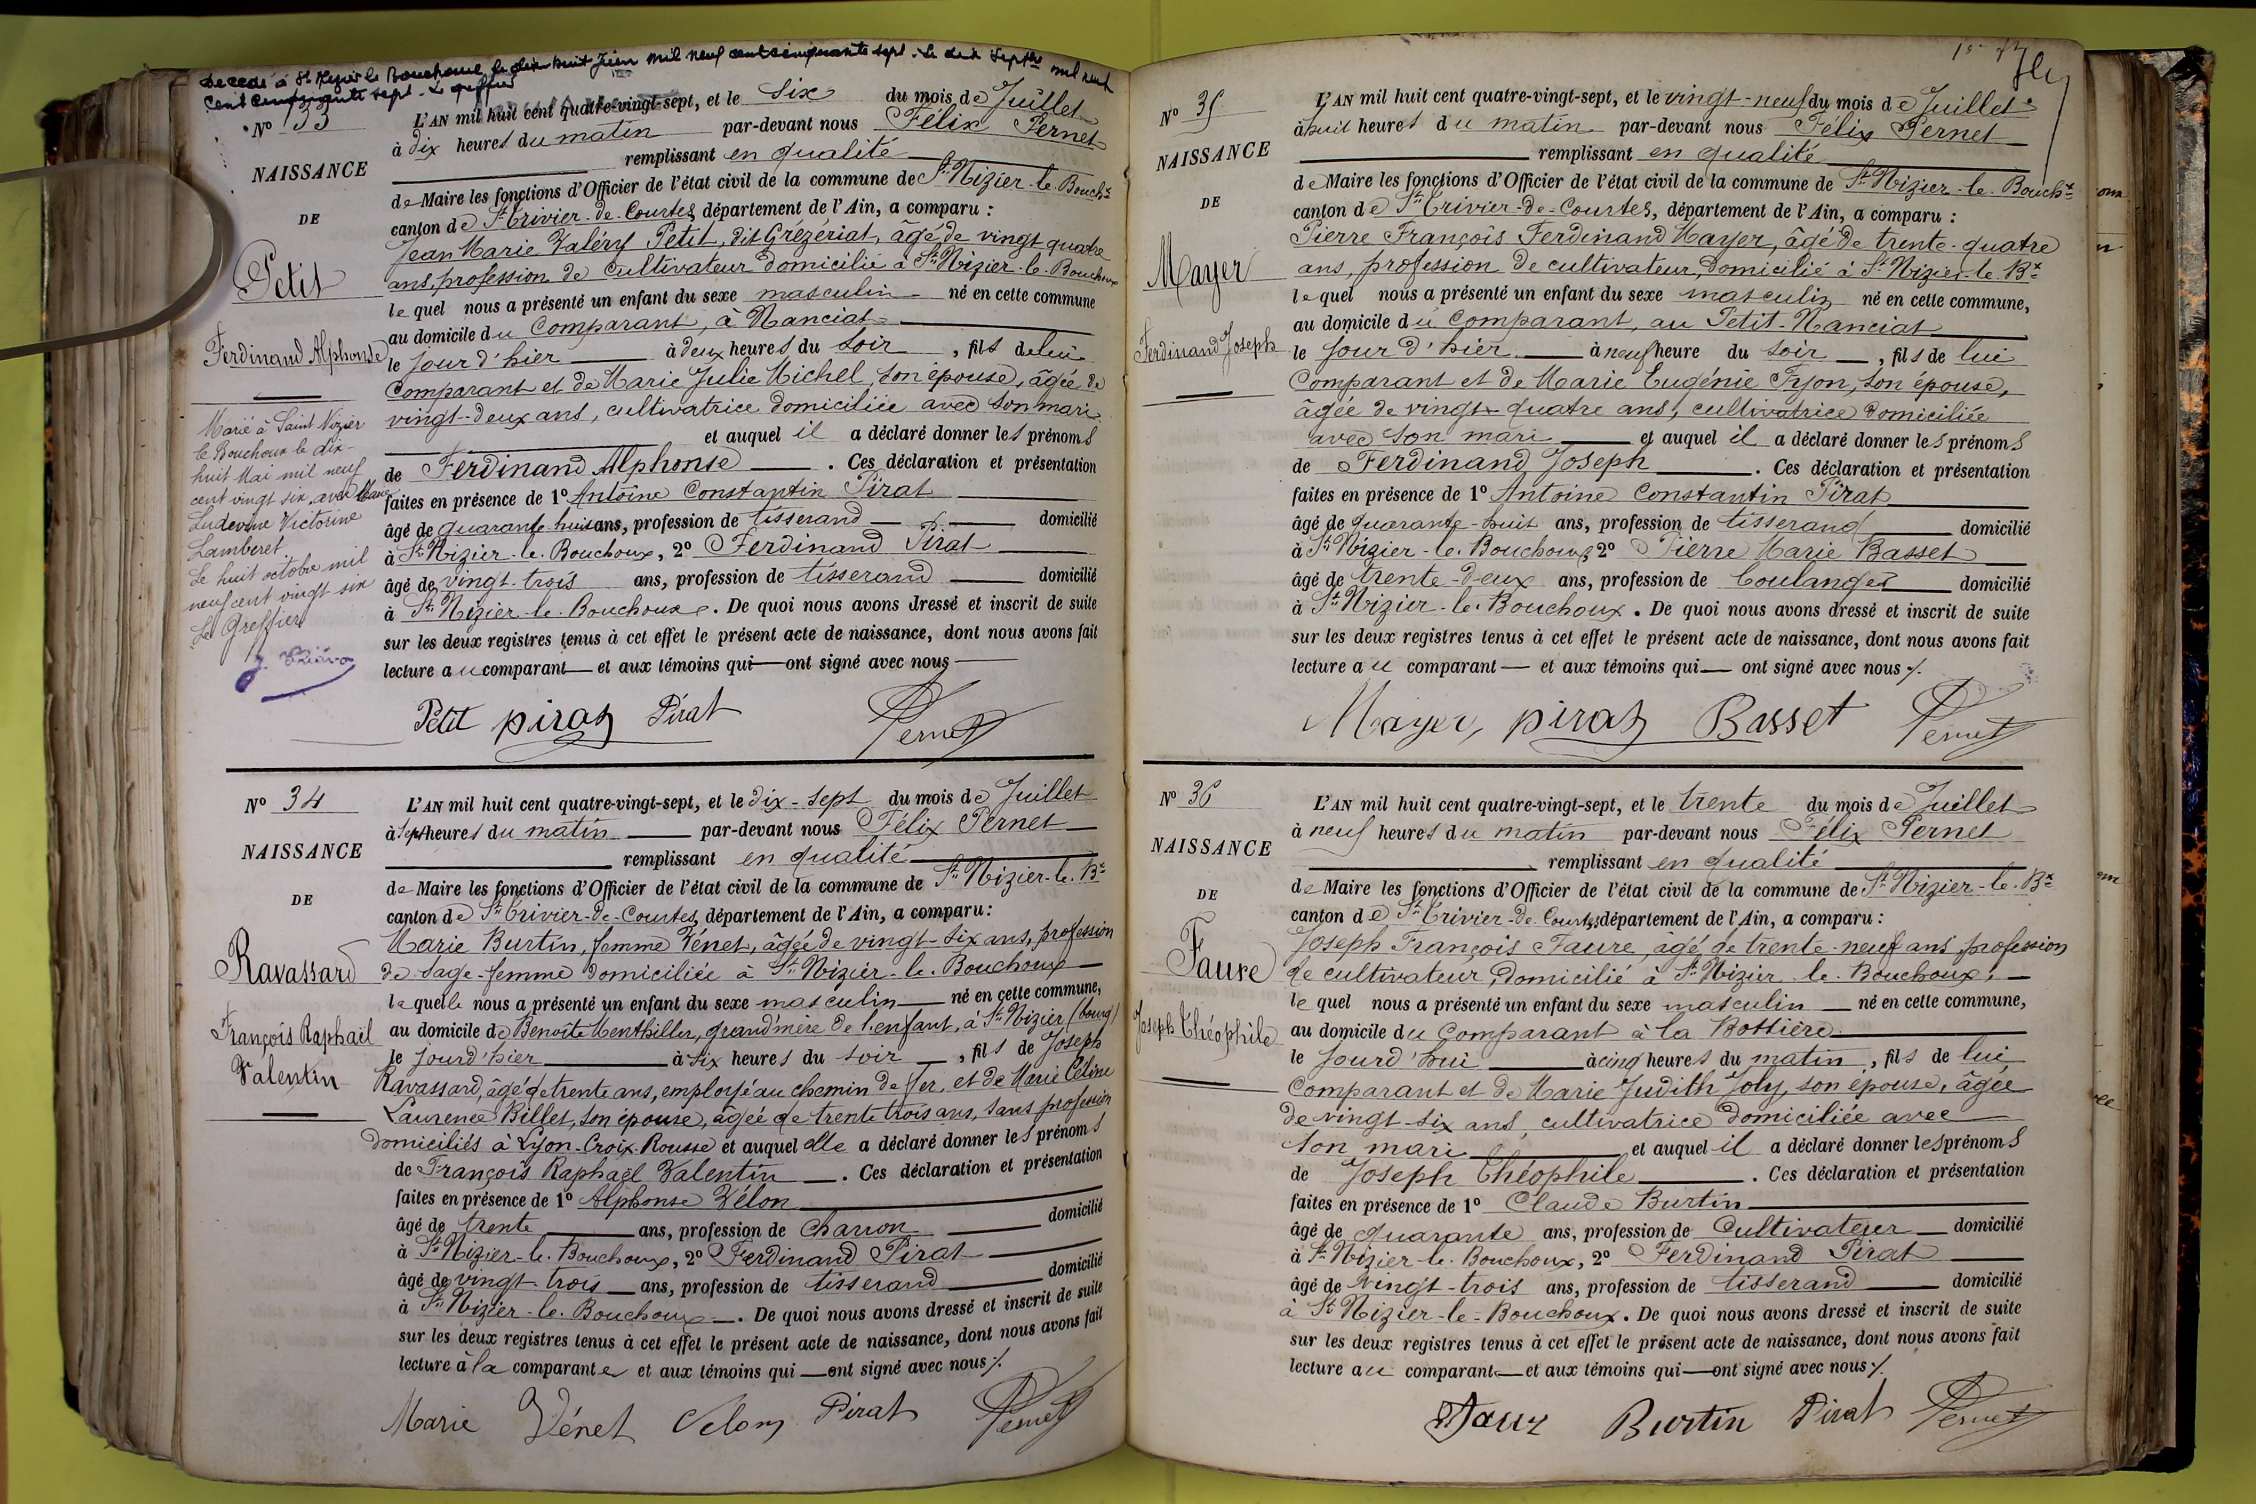 Décédé à St Nizier le Bouchoux le dix huit Juin mil neuf cent cinquante sept. Le dix Septbre mil neuf
cent cinquante sept. Le greffier
No 33
NAISSANCE
DE
Petit
Ferdinand Alphonse
Marié à Saint Nizier
le Bouchoux le dix-
huit Mai mil neuf
cent vingt six avec Marie
Ludevine Victorine
Lamberet
Le huit octobre mil
neuf cent vingt six
Le Greffier
L'AN mil huit cent quatre-vingt-sept, et le six du mois de Juillet
à dix heures du matin par-devant nous Félix Pernet
remplissant en qualité
de Maire les fonctions d'Officier de l'état civil de la commune de St Nizier-le-Bouchx
canton de St Trivier-de-Courtes, département de l'Ain, a comparu :
Jean Marie Valéry Petit, dit Grezeriat, âgé de vingt quatre
ans, profession de cultivateur domicilié à St Nizier-le-Bouchoux
lequel nous a présenté un enfant du sexe masculin né en cette commune
au domicile du Comparant, à Nanciat
le jour d'hier à deux heures du soir, fils de lui
Comparant et de Marie Julie Michel, son épouse, âgée de
vingt-deux ans, cultivatrice domiciliée avec son mari
et auquel il a déclaré donner les prénoms
de Ferdinand Alphonse. Ces déclaration et présentation
faites en présence de 1o Antoine Constantin Pirat
âgé de quarante-huit ans, profession de tisserand domicilié
à St Nizier-le-Bouchoux, 2o Ferdinand Pirat
âgé de vingt-trois ans, profession de tisserand domicilié
à St Nizier-le-Bouchoux. De quoi nous avons dressé et inscrit de suite
sur les deux registres tenus à cet effet le présent acte de naissance, dont nous avons fait
lecture au comparant et aux témoins qui ont signé avec nous
Petit Pirat Pirat Pernet
No 34
NAISSANCE
DE
Ravassard
François Raphaël
Valentin
L'AN mil huit cent quatre-vingt-sept, et le dix-sept du mois de Juillet
à sept heures du matin par-devant nous Félix Pernet
remplissant en qualité
de Maire les fonctions d'Officier de l'état civil de la commune de St Nizier-le-Bx
canton de St Trivier-de-Courtes, département de l'Ain, a comparu :
Marie Burtin, femme Vénet, âgée de vingt-six ans, profession
de sage-femme domiciliée à St Nizier-le-Bouchoux
laquelle nous a présenté un enfant du sexe masculin né en cette commune,
au domicile de Benoîte Menthiller, grand'mère de l'enfant, à St Nizier (bourg)
le jour d'hier à six heures du soir, fils de Joseph
Ravassard, âgé de trente ans, employé au chemin de fer, et de Marie Céline
Laurence Billet, son épouse, âgée de trente trois ans, sans profession
domiciliés à Lyon-Croix-Rousse et auquel elle a déclaré donner les prénoms
de François Raphaël Valentin. Ces déclaration et présentation
faites en présence de 1o Alphonse Vélon
âgé de trente ans, profession de charron domicilié
à St Nizier-le-Bouchoux, 2o Ferdinand Pirat
âgé de vingt-trois ans, profession de tisserand domicilié
à St Nizier-le-Bouchoux. De quoi nous avons dressé et inscrit de suite
sur les deux registres tenus à cet effet le présent acte de naissance, dont nous avons fait
lecture à la comparante et aux témoins qui ont signé avec nous
Marie Vénet Velon Pirat Pernet
No 35
NAISSANCE
DE
Mayer
Ferdinand Joseph
L'AN mil huit cent quatre-vingt-sept, et le vingt-neuf du mois de Juillet
à huit heures du matin par-devant nous Félix Pernet
remplissant en qualité
de Maire les fonctions d'Officier de l'état civil de la commune de St Nizier-le-Bouchx
canton de St Trivier-de-Courtes, département de l'Ain, a comparu :
Pierre François Ferdinand Mayer, âgé de trente-quatre
ans, profession de cultivateur, domicilié à St Nizier-le-Bx
lequel nous a présenté un enfant du sexe masculin né en cette commune,
au domicile du Comparant, au Petit-Nanciat
le jour d'hier à neuf heure du soir, fils de lui
Comparant et de Marie Eugénie Fyon, son épouse,
âgée de vingt-quatre ans, cultivatrice domiciliée
avec son mari et auquel il a déclaré donner les prénoms
de Ferdinand Joseph. Ces déclaration et présentation
faites en présence de 1o Antoine Constantin Pirat
âgé de quarante-huit ans, profession de tisserand domicilié
à St Nizier-le-Bouchoux, 2o Pierre Marie Basset
âgé de trente-deux ans, profession de boulanger domicilié
à St Nizier-le-Bouchoux. De quoi nous avons dressé et inscrit de suite
sur les deux registres tenus à cet effet le présent acte de naissance, dont nous avons fait
lecture au comparant et aux témoins qui ont signé avec nous
Mayer, Pirat Basset Pernet
No 36
NAISSANCE
DE
Faure
Joseph Théophile
L'AN mil huit cent quatre-vingt-sept, et le trente du mois de Juillet
à neuf heures du matin par-devant nous Félix Pernet
remplissant en qualité
de Maire les fonctions d'Officier de l'état civil de la commune de St Nizier-le-Bx
canton de St Trivier-de-Courtes, département de l'Ain, a comparu :
Joseph François Faure, âgé de trente-neuf ans, profession
de cultivateur, domicilié à St Nizier-le-Bouchoux,
lequel nous a présenté un enfant du sexe masculin né en cette commune,
au domicile du Comparant à la Bottière
le jourd'hui à cinq heures du matin, fils de lui
Comparant et de Marie Judith Joly, son épouse, âgée
de vingt-six ans, cultivatrice domiciliée avec
son mari et auquel il a déclaré donner les prénoms
de Joseph Théophile. Ces déclaration et présentation
faites en présence de 1o Claude Burtin
âgé de quarante ans, profession de Cultivateur domicilié
à St Nizier-le-Bouchoux, 2o Ferdinand Pirat
âgé de vingt-trois ans, profession de tisserand domicilié
à St Nizier-le-Bouchoux. De quoi nous avons dressé et inscrit de suite
sur les deux registres tenus à cet effet le présent acte de naissance, dont nous avons fait
lecture au comparant et aux témoins qui ont signé avec nous
Faure Burtin Pirat Pernet